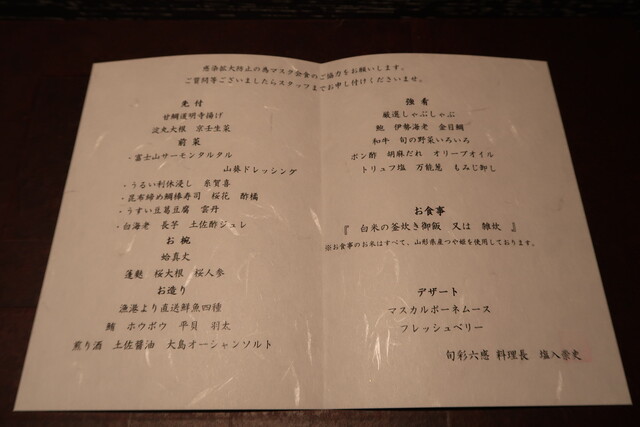 感染拡大防止の為マスク会食のご協力をお願いします。
ご質問等ございましたらスタッフまでお申し付けくださいませ。
先付
甘鯛道明寺揚げ
淀丸大根　京壬生菜
前菜
・富士山サーモンタルタル
山葵ドレッシング
・うるい利休浸し　糸賀喜
・昆布締め鯛棒寿司　桜花　酢橘
・うすい豆葛豆腐　雲丹
・白海老　長芋　土佐酢ジュレ
お椀
蛤真丈
蓬麩　桜大根　桜人参
お造り
漁港より直送鮮魚四種
鮪　ホウボウ　平貝　羽太
煎り酒　土佐醤油　大島オーシャンソルト
強肴
厳選しゃぶしゃぶ
鮑　伊勢海老　金目鯛
和牛　旬の野菜いろいろ
ポン酢　胡麻だれ　オリーブオイル
トリュフ塩　万能葱　もみじ卸し
お食事
『　白米の釜炊き御飯　又は　雑炊　』
※お食事のお米はすべて、山形県産つや姫を使用しております。
デザート
マスカルポーネムース
フレッシュベリー
旬彩六感　料理長　塩入崇史